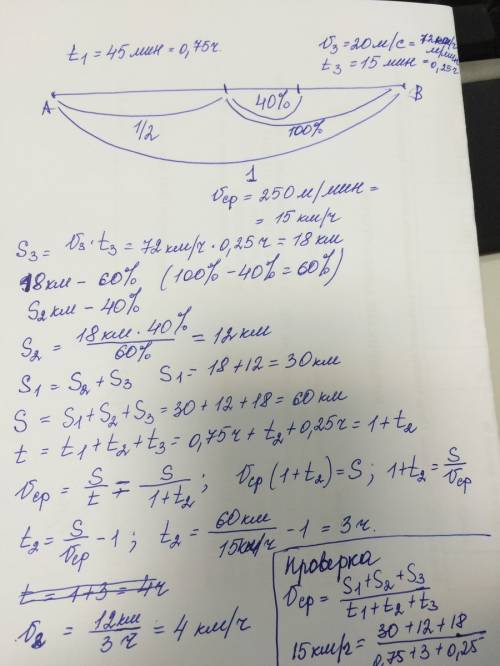 t₁ = 45 мин = 0,75ч
v₃ = 20 м/с = 72 км/ч
t₃ = 15 мин = 0,25ч
A 40% B
1/2 100%
1
vср = 250 м/мин =
= 15 км/ч
S₃ = v₃·t₃ = 72 км/ч · 0,25 ч = 18 км
18 км – 60% (100% – 40% = 60%)
S₂ км – 40%
S₂ = 18 км · 40% / 60% = 12 км
S₁ = S₂ + S₃ S₁ = 18 + 12 = 30 км
S = S₁ + S₂ + S₃ = 30 + 12 + 18 = 60 км
t = t₁ + t₂ + t₃ = 0,75ч + t₂ + 0,25ч = 1 + t₂
vср = S/t = S/(1+t₂) ; vср (1 + t₂) = S ; 1 + t₂ = S/vср
t₂ = S/vср – 1 ; t₂ = 60 км / 15 км/ч – 1 = 3 ч.
t = 1 + 3 = 4ч
v₂ = 12 км / 3 ч = 4 км/ч
Проверка
vср = (S₁ + S₂ + S₃) / (t₁ + t₂ + t₃)
15 км/ч = (30 + 12 + 18) / (0,75 + 3 + 0,25)